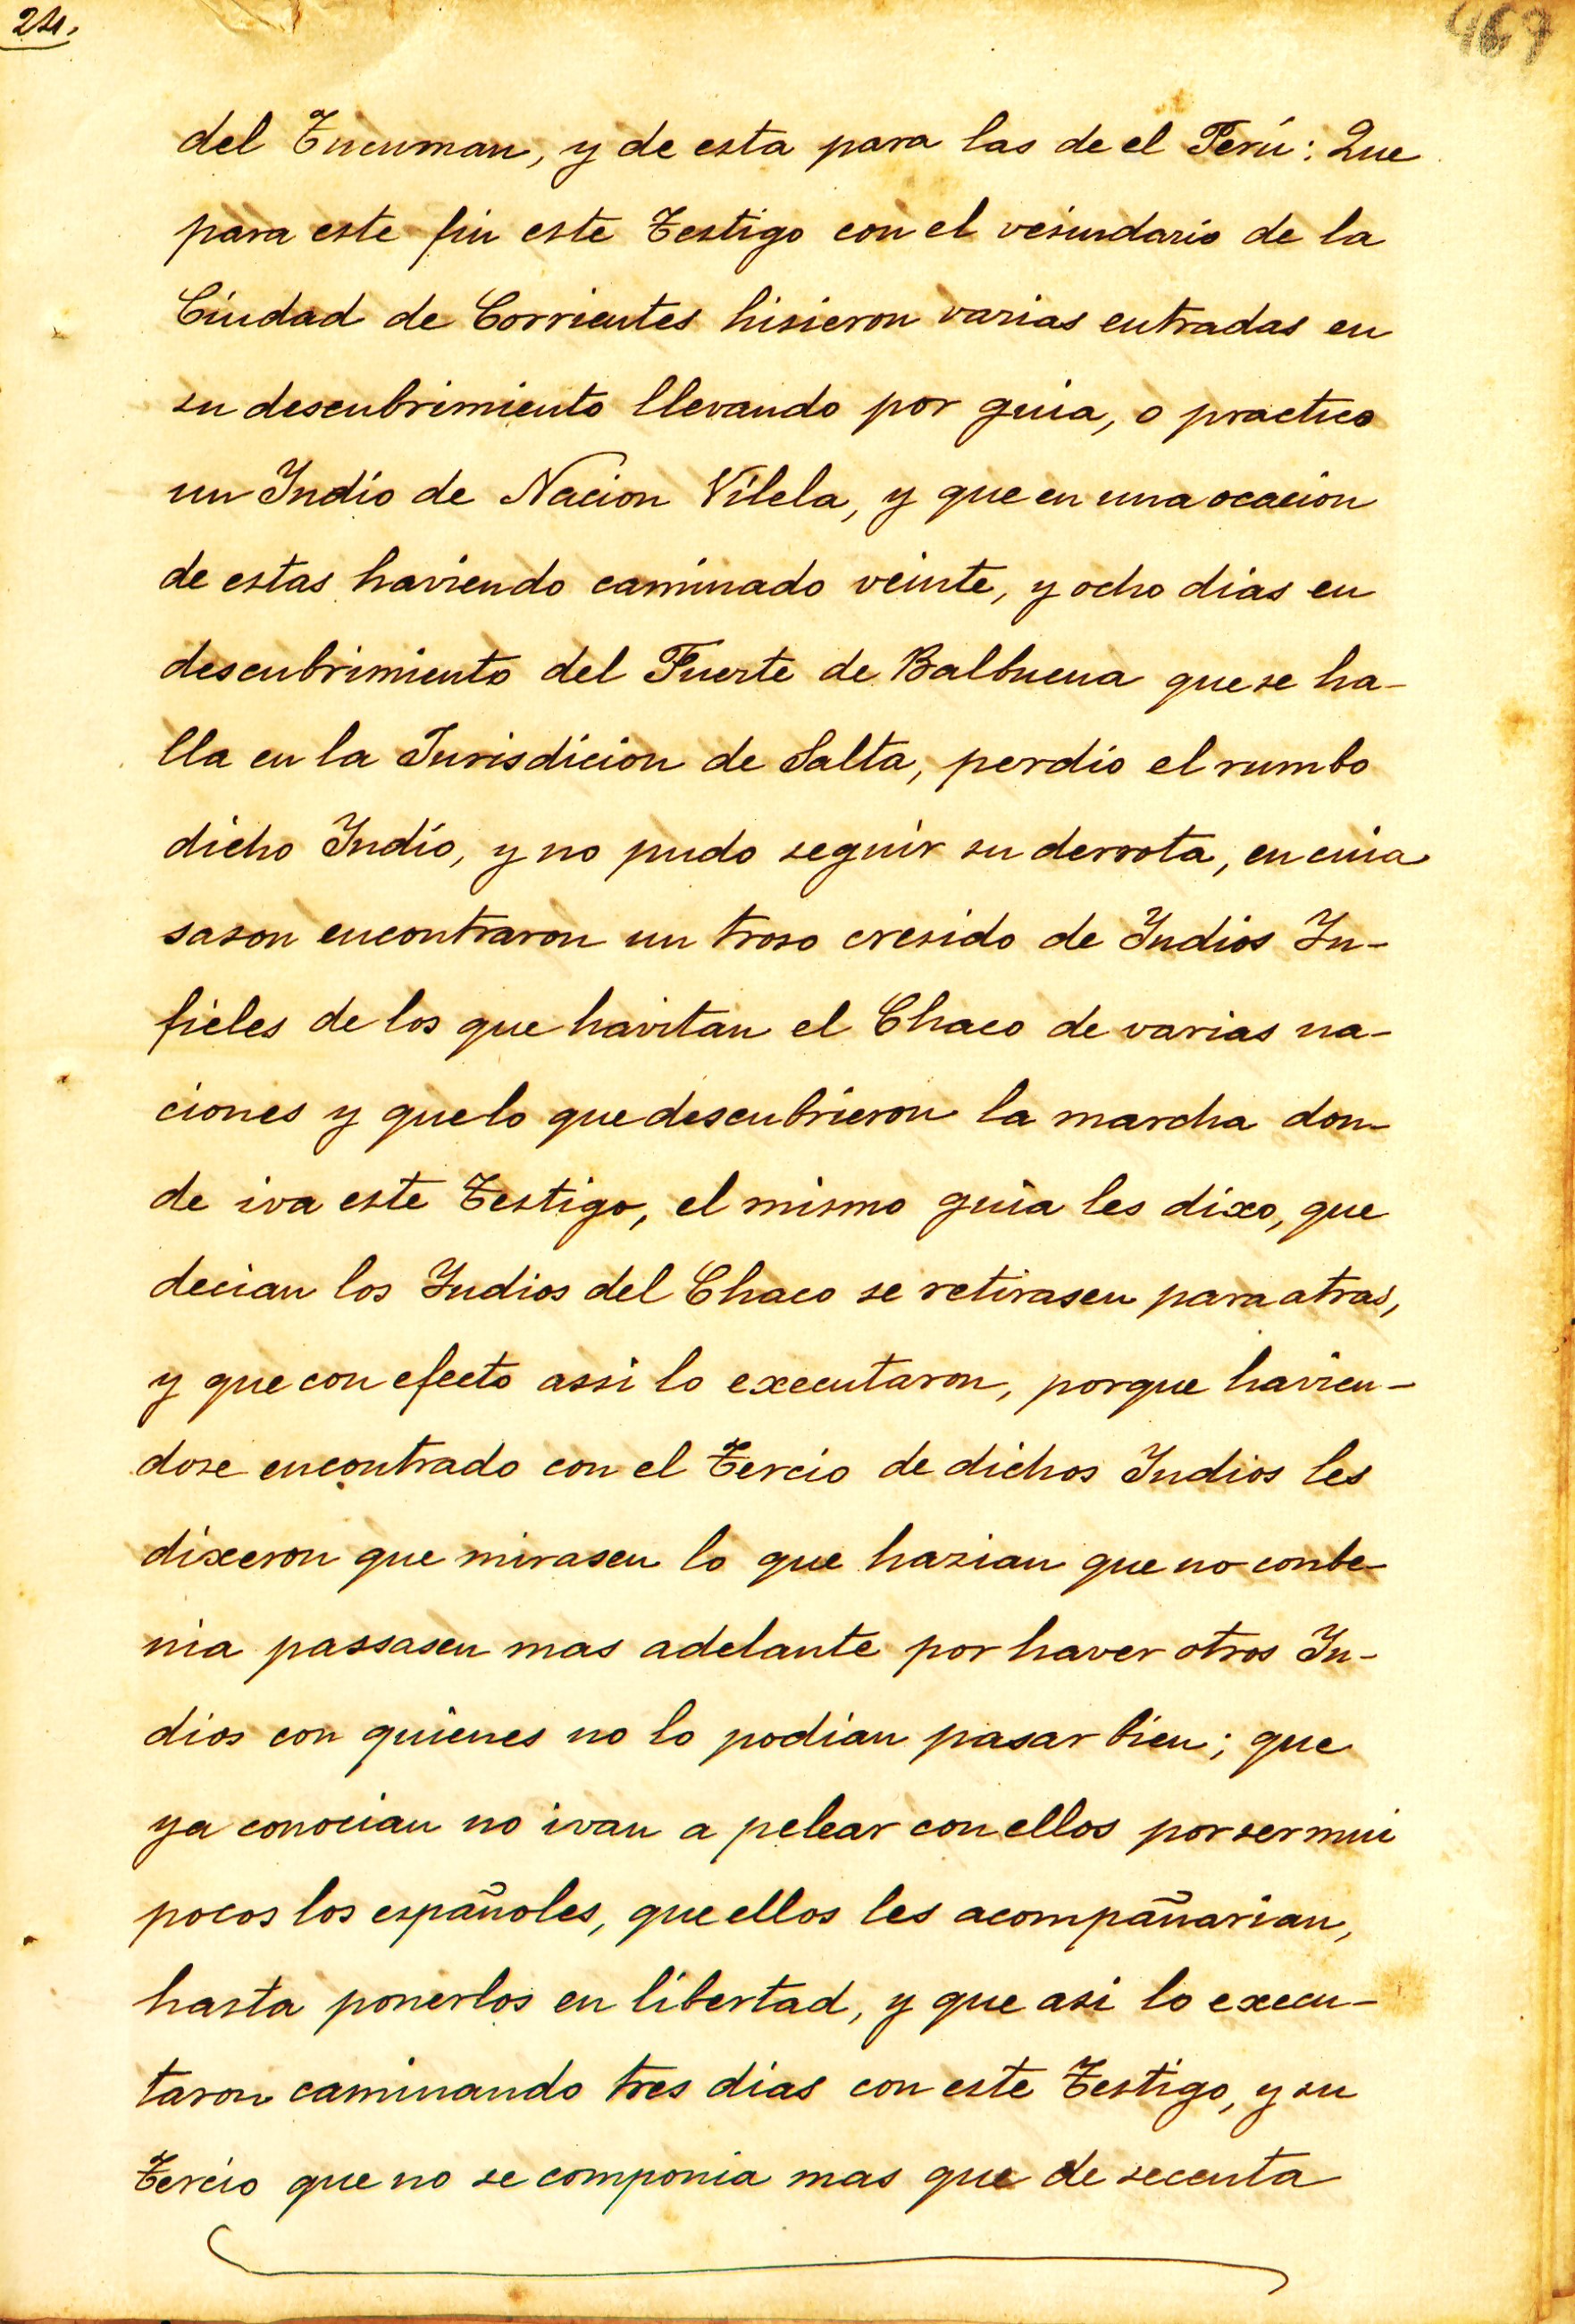 24.
467
del Tucuman, y de esta para las de el Perú: Que
para este fin este Testigo con el vesindario de la
Ciudad de Corrientes hisieron varias entradas en
su descubrimiento llevando por guia, o practico
un Indio de Nacion Vilela, y que en una ocacion
de estas haviendo caminado veinte, y ocho dias en
descubrimiento del Fuerte de Balbuena que se ha-
lla en la Jurisdicion de Salta, perdio el rumbo
dicho Indio, y no pudo seguir su derrota, en cuia
sason encontraron un troso cresido de Indios In-
fieles de los que havitan el Chaco de varias na-
ciones y que lo que descubrieron la marcha don-
de iva este Testigo, el mismo guia les dixo, que
decian los Indios del Chaco se retirasen para atras,
y que con efecto assi lo executaron, porque havien-
dose encontrado con el Tercio de dichos Indios les
dixeron que mirasen lo que hazian que no conbe-
nia passasen mas adelante por haver otros In-
dios con quienes no lo podian pasar bien; que
ya conocian no ivan a pelear con ellos por ser mui
pocos los españoles, que ellos les acompañarian,
hasta ponerlos en libertad, y que asi lo execu-
taron caminando tres dias con este Testigo, y su
Tercio que no se componia mas que de secenta